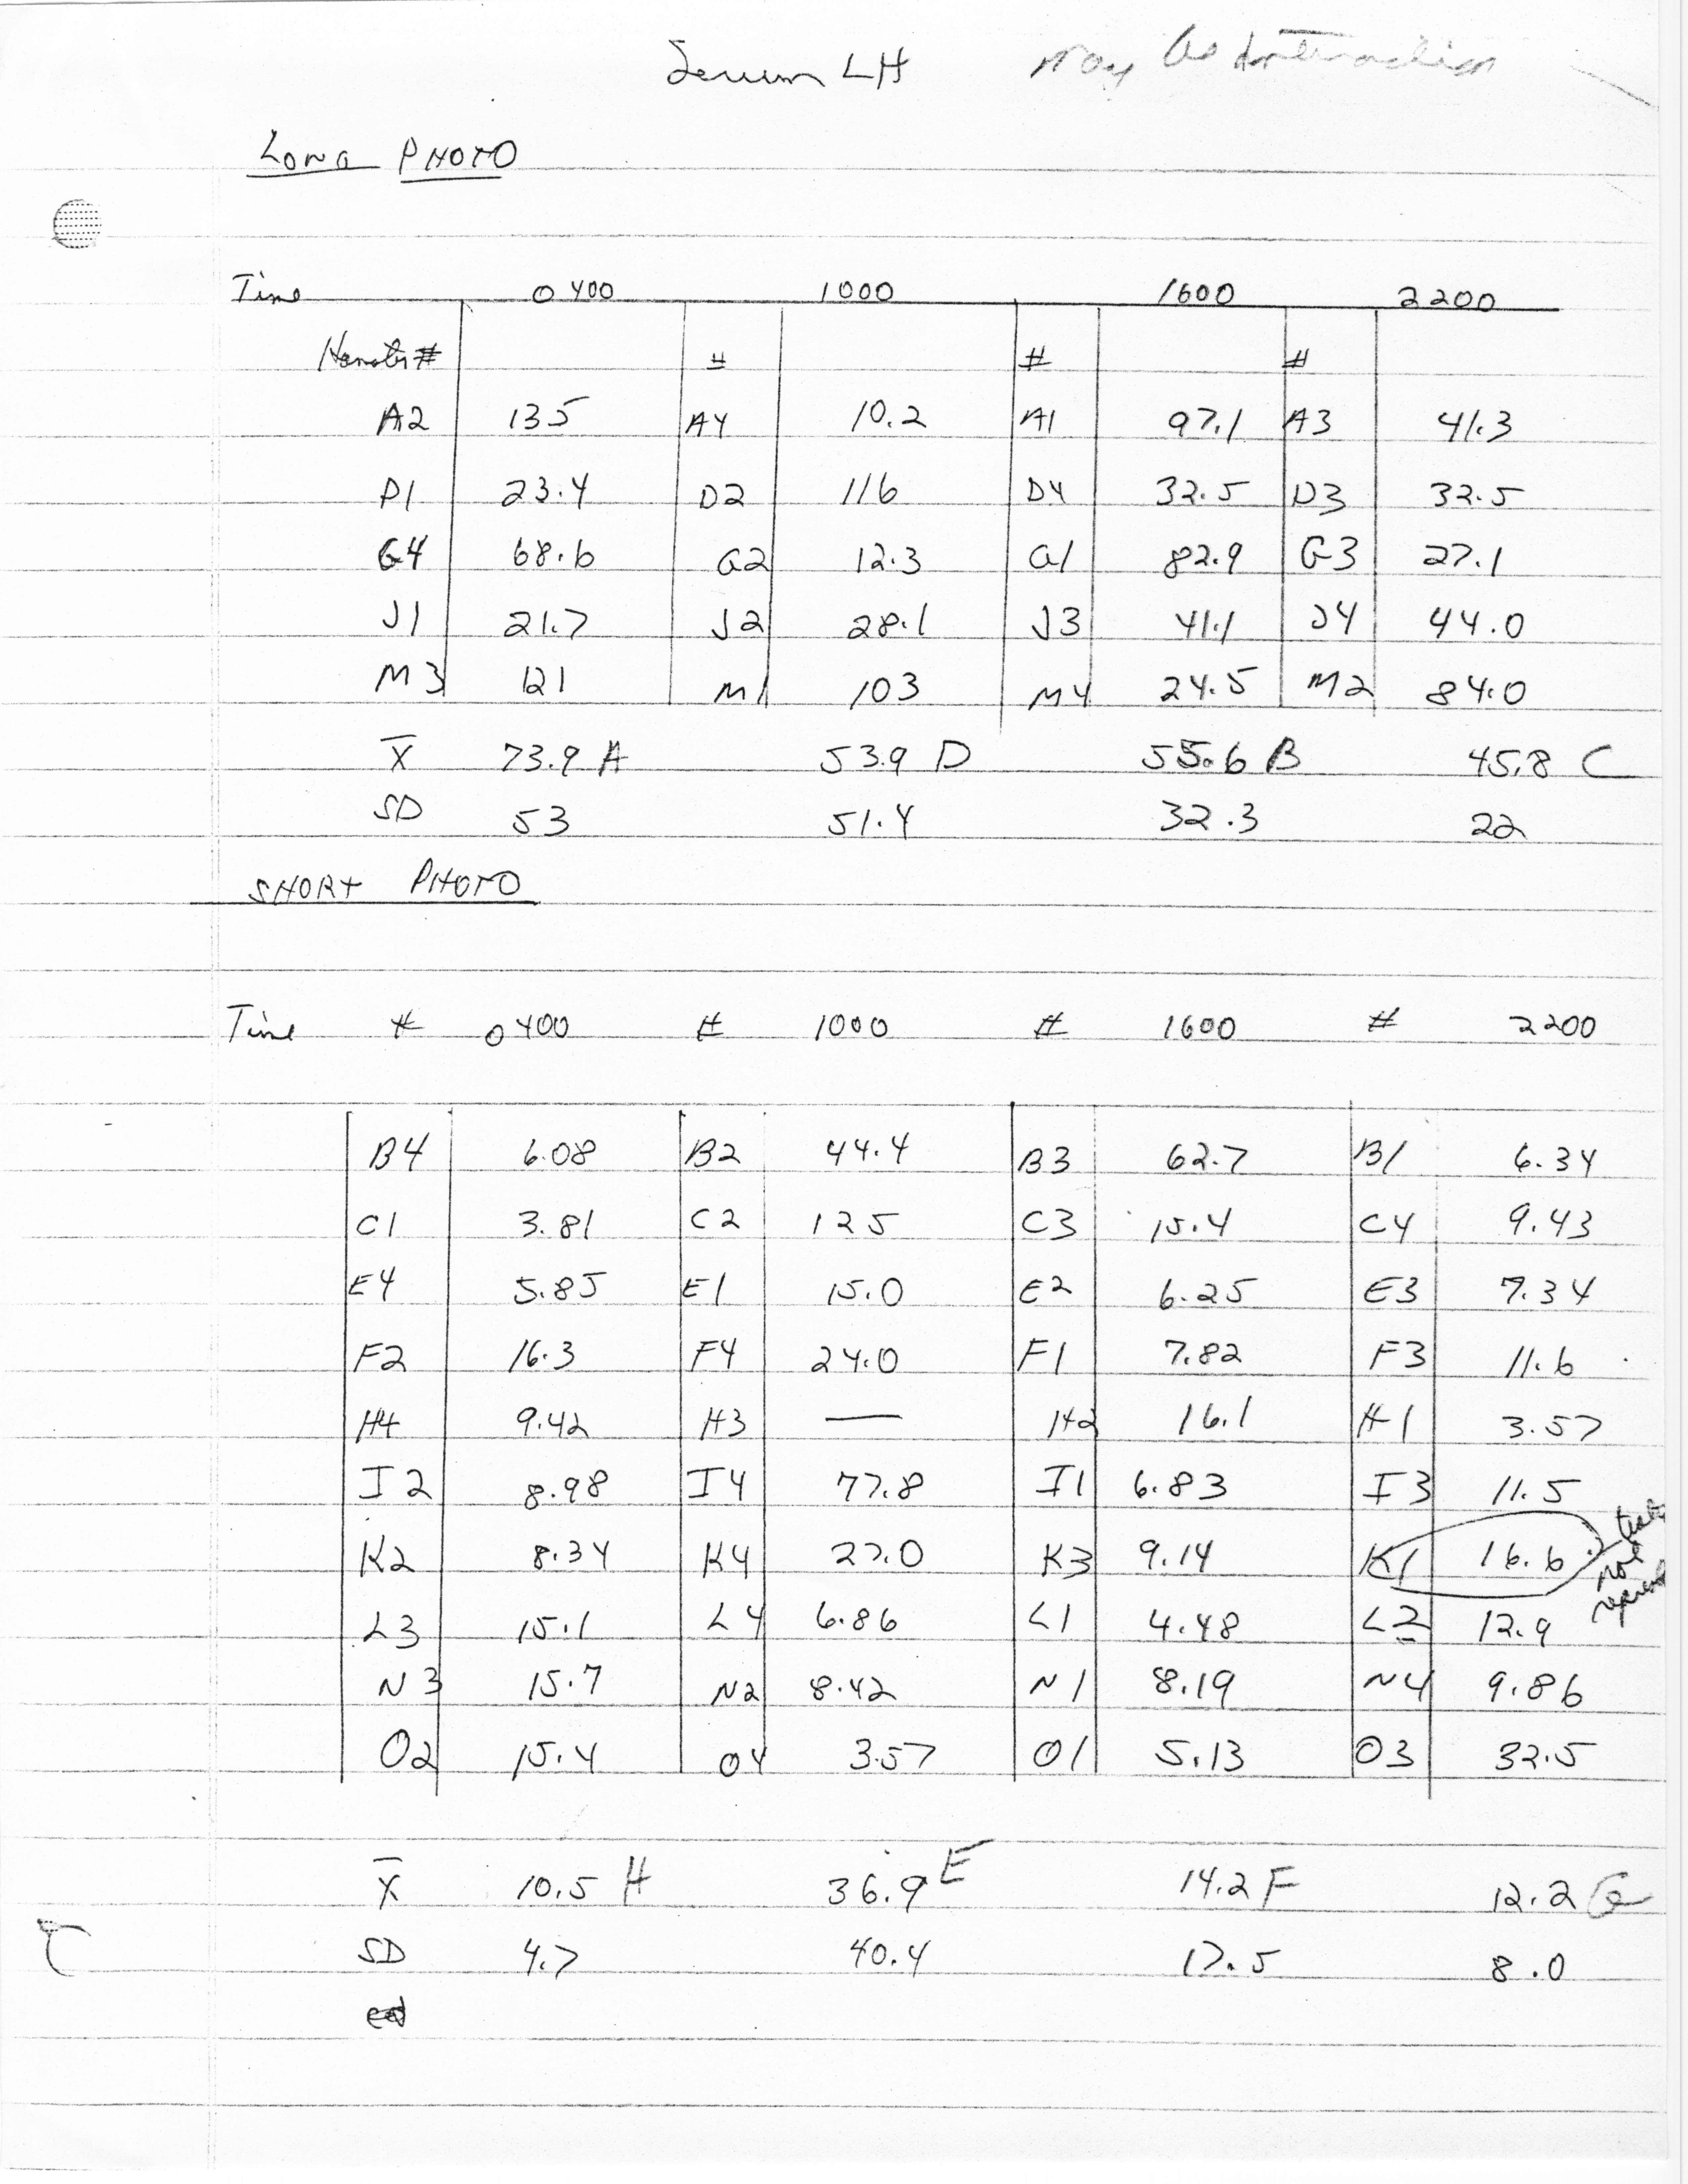 Serum LH
LONG PHOTO
Time 0400 1000 1600 2200
Hamster # # # #
A2 135 A4 10.2 A1 97.1 A3 41.3
D1 23.4 D2 116 D4 32.5 D3 32.5
G4 68.6 G2 12.3 G1 82.9 G3 27.1
J1 21.7 J2 28.1 J3 41.1 J4 44.0
M3 121 M1 103 M4 24.5 M2 84.0
X̄ 73.9 A 53.9 D 55.6 B 45.8 C
SD 53 51.4 32.3 22
SHORT PHOTO
Time # 0400 # 1000 # 1600 # 2200
B4 6.08 B2 44.4 B3 62.7 B1 6.34
C1 3.81 C2 125 C3 15.4 C4 9.43
E4 5.85 E1 15.0 E2 6.25 E3 7.34
F2 16.3 F4 24.0 F1 7.82 F3 11.6
H4 9.42 H3 — H2 16.1 H1 3.57
I2 8.98 I4 77.8 I1 6.83 I3 11.5
K2 8.34 K4 27.0 K3 9.14 K1 16.6 not
L3 15.1 L4 6.86 L1 4.48 L2 12.9
N3 15.7 N2 8.42 N1 8.19 N4 9.86
O2 15.4 O4 3.57 O1 5.13 O3 32.5
X̄ 10.5 H 36.9 E 14.2 F 12.2 G
SD 4.7 40.4 17.5 8.0